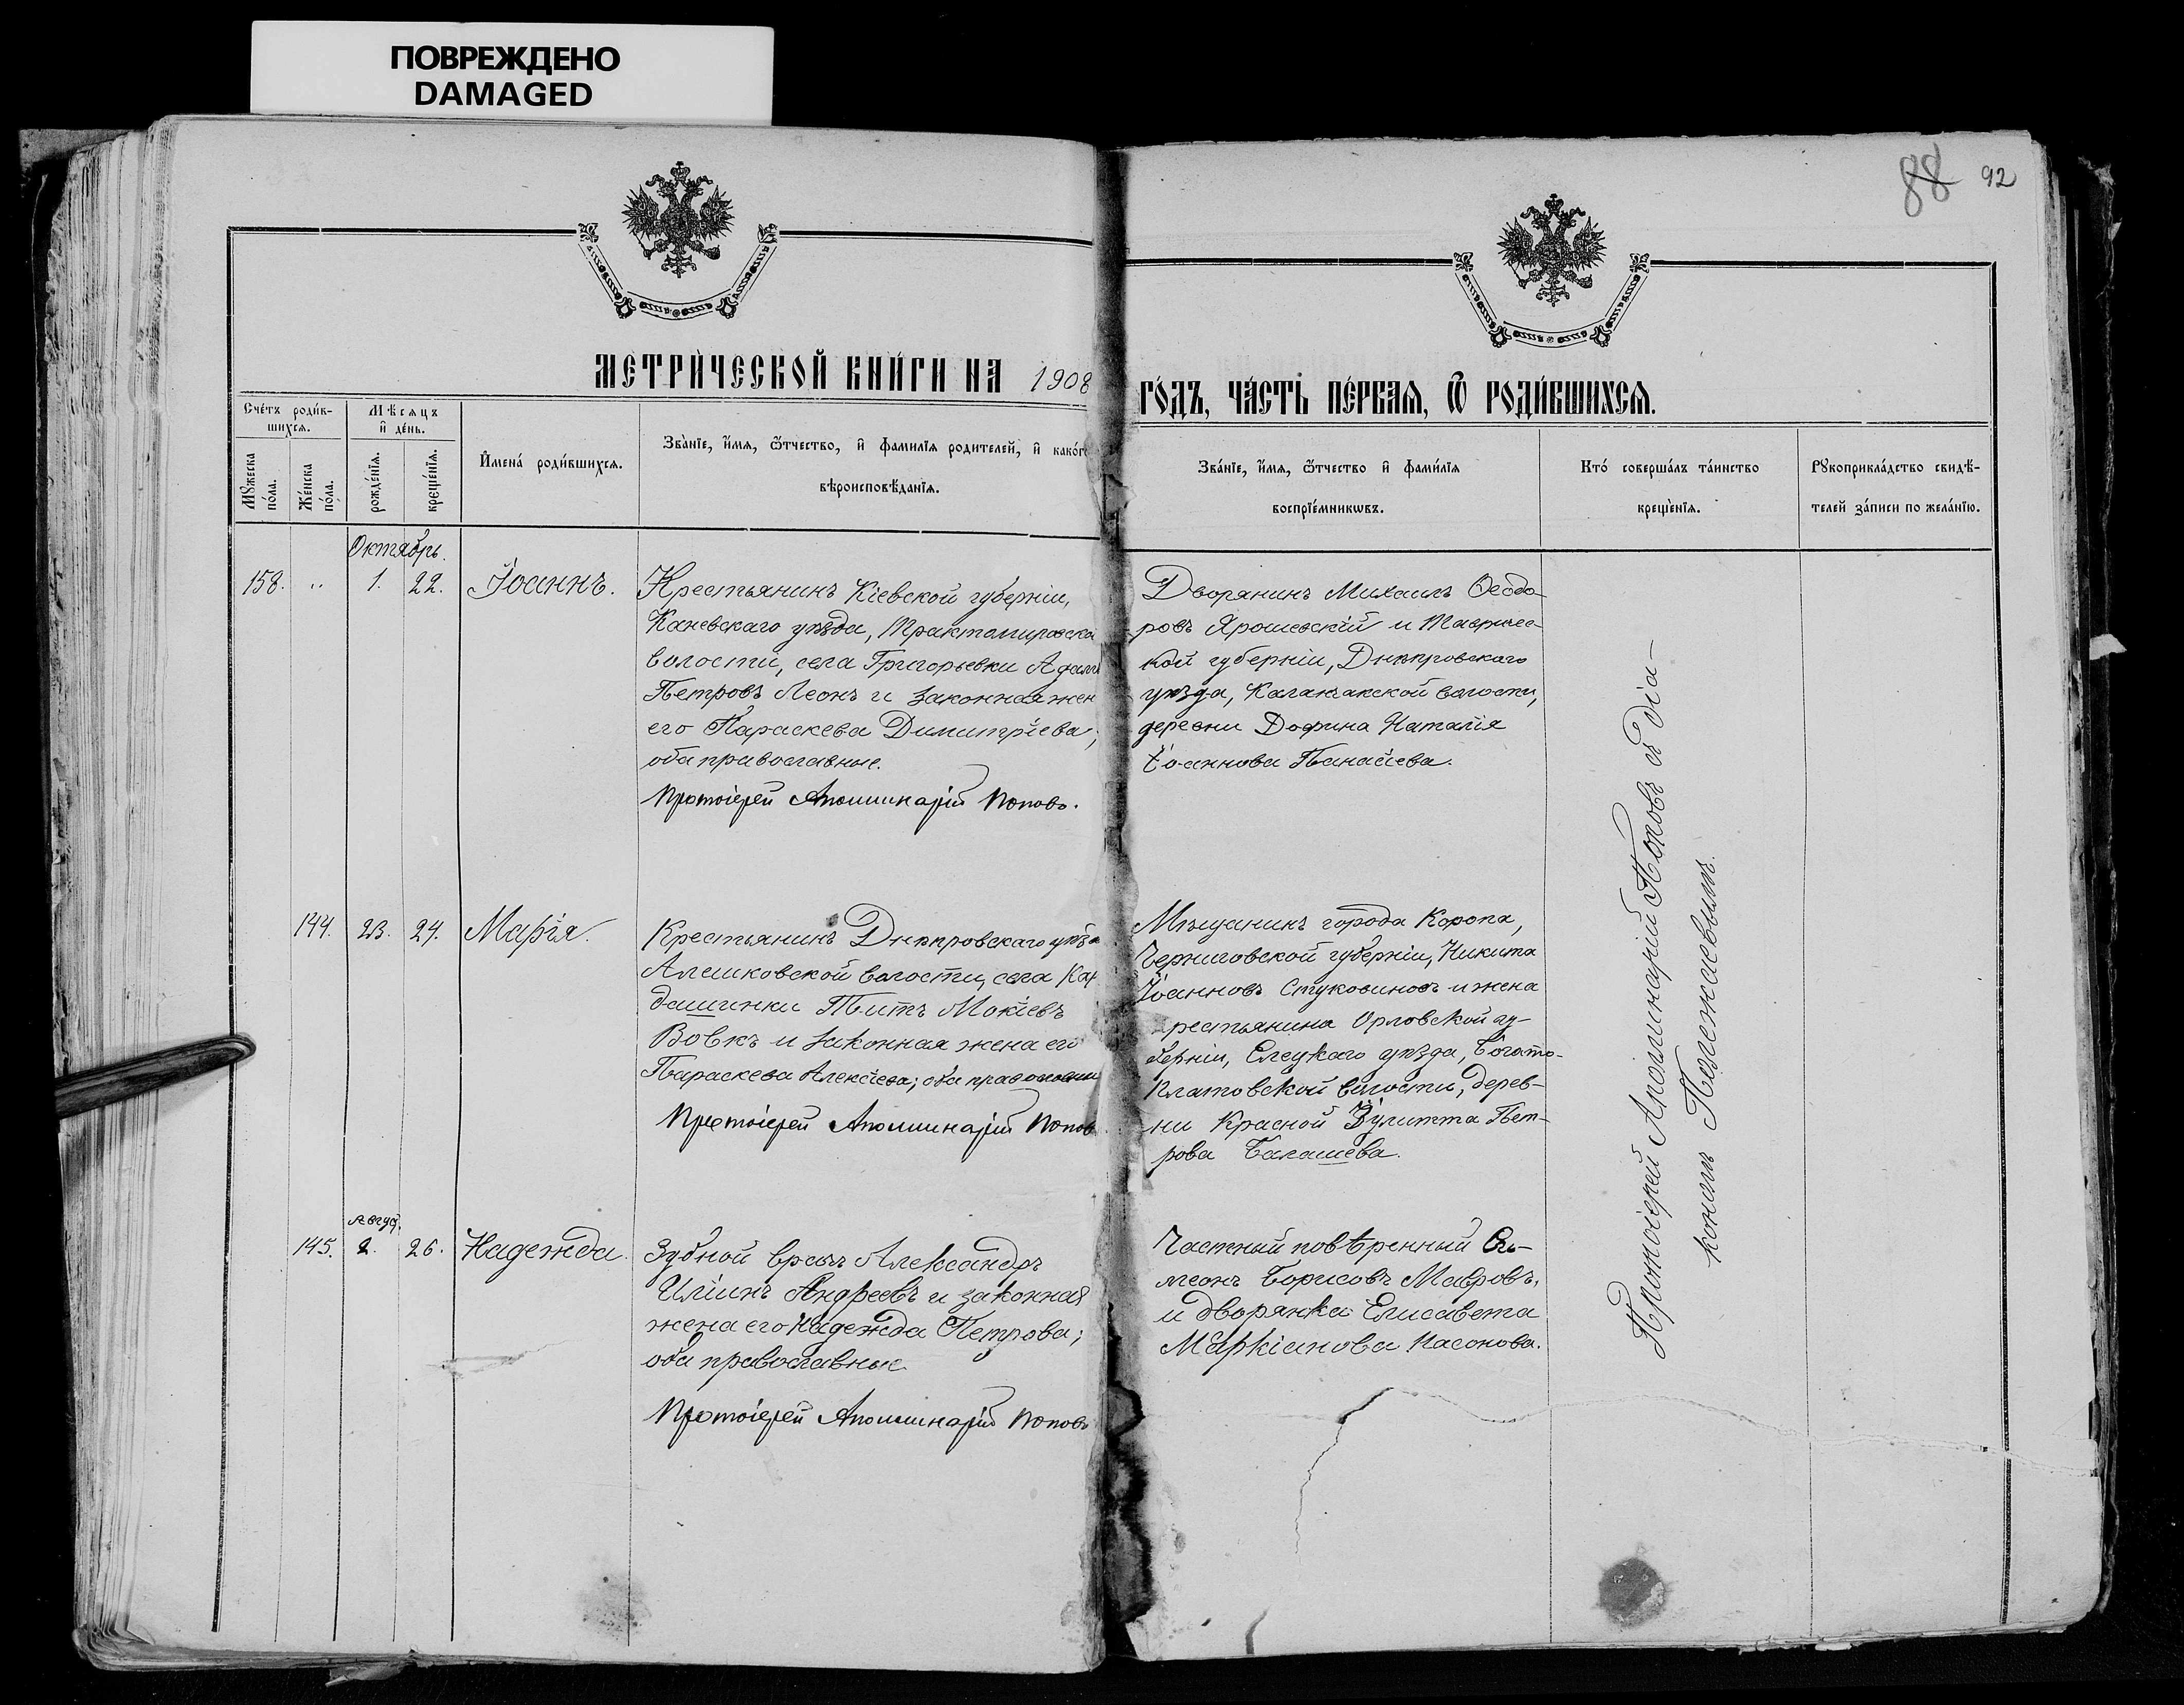 ПОВРЕЖДЕНО
DAMAGED
88 92
МЕТРИ́ЧЕСКОЙ КНИ́ГИ НА 1908
ГО́ДЪ, ЧА́СТЬ ПЕ́РВАЯ, Ѿ РОДИ́ВШИХСЯ.
Сче́тъ роди́в-
шихся.
Мѣсяцъ
и де́нь.
Мꙋжеска
по́ла.
Же́нска
по́ла.
рожде́нїя.
креще́нїя.
Имена́ роди́вшихся.
Зва́нїе, и́мя, ѻ́тчество, и фамилїя родителей, и како́г
вѣроисповѣ́данїя.
Зва́нїе, и́мя, ѻ́тчество и фами́лїя
воспрїе́мникѡвъ.
Кто́ соверша́лъ та́инство
креще́нїя.
Рꙋкоприкла́дство свидѣ́-
телей за́писи по жела́нїю.
Октябрь.
158. „ 1. 22. Іоаннъ.
Крестьянинъ Кіевской губерніи,
Каневскаго уѣзда, Трактомировско
волости, села Григорьевки Адам
Петровъ Леонъ и законная жен
его Параскева Димитріева;
оба православные.
Протоіерей Аполлинарій Поповъ.
Дворянинъ Михаилъ Ѳеодо-
ровъ Ярошевскій и Тавриче-
кой губерніи, Днѣпровскаго
уѣзда, Каланчакской волости,
деревни Дофина Наталія
Іоаннова Панайева.
144. 23. 24. Марія.
Крестьянинъ Днѣпровскаго уѣз
Алешковской волости, села Кар
дашинки Титъ Мокіевъ
Вовкъ и законная жена его
Параскева Алексіева; оба православны
Протоіерей Аполлинарій Попов
Мѣщанинъ города Коропа,
Черниговской губерніи, Никита
Іоанновъ Стуковиновъ и жена
крестьянина Орловской гу-
берніи, Елецкаго уѣзда, Богато-
платовской волости, дерев-
ни Красной Іулитта Пет-
рова Балашева.
Авгус.
145. 2. 26. Надежда.
Зубной врачъ Александръ
Иліинъ Андреевъ и законная
жена его Надежда Петрова;
оба православные
Протоіерей Аполлинарій Поповъ
Частный повѣренный Си-
меонъ Борисовъ Мавровъ,
и дворянка Елисавета
Маркіанова Насонова.
Протоіерей Аполлинарій Поповъ съ діа-
кономъ Полежаевымъ.